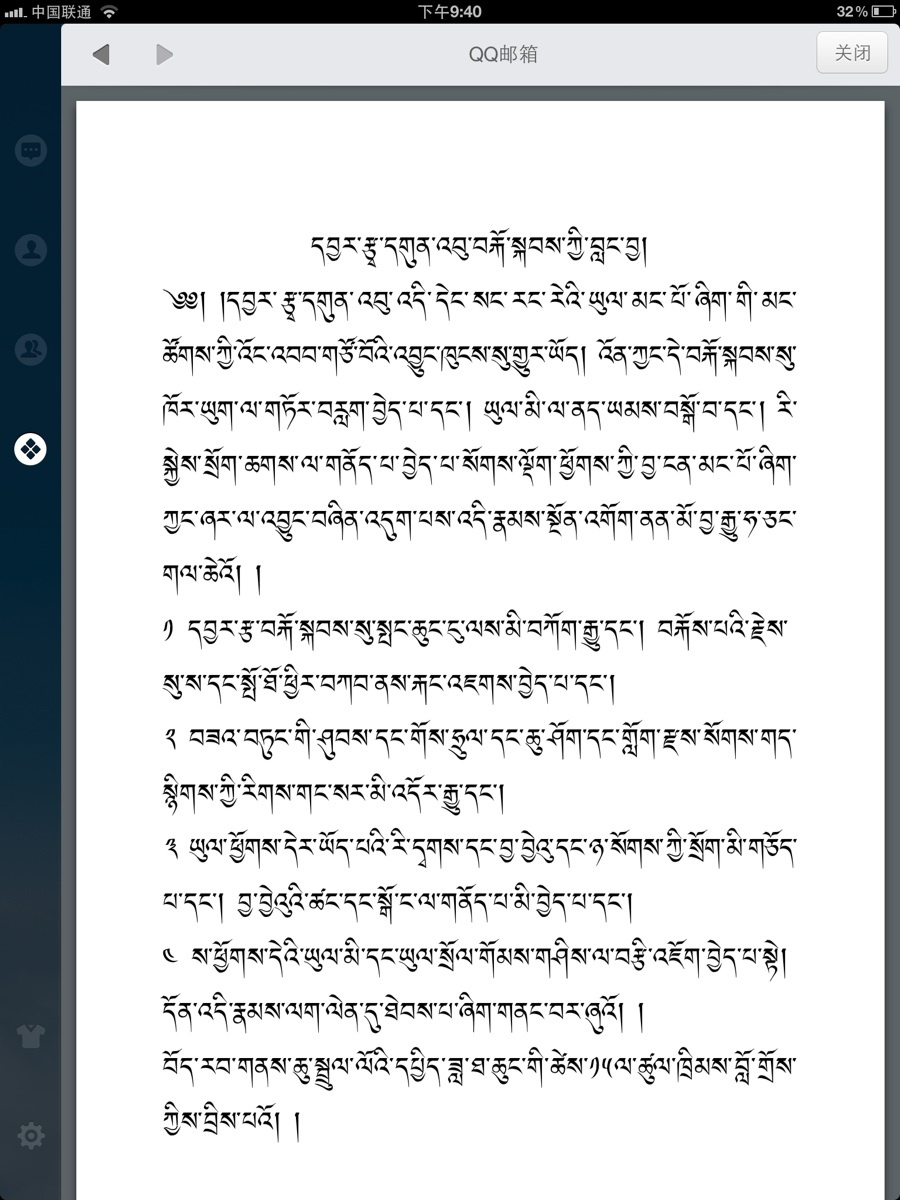 中国联通 下午9:40 32%
QQ邮箱 关闭
དབྱར་རྩྭ་དགུན་འབུ་བརྐོ་སྐབས་ཀྱི་བླང་བྱ།
༄༅། །དབྱར་རྩྭ་དགུན་འབུ་འདི་དེང་སང་རང་རེའི་ཡུལ་མང་པོ་ཞིག་གི་མང་
ཚོགས་ཀྱི་འོང་འབབ་གཙོ་བོའི་འབྱུང་ཁུངས་སུ་གྱུར་ཡོད། འོན་ཀྱང་དེ་བརྐོ་སྐབས་སུ་
ཁོར་ཡུག་ལ་གཏོར་བརླག་བྱེད་པ་དང་། ཡུལ་མི་ལ་ནད་ཡམས་བསྒོ་བ་དང་། རི་
སྐྱེས་སྲོག་ཆགས་ལ་གནོད་པ་བྱེད་པ་སོགས་ལྡོག་ཕྱོགས་ཀྱི་བྱ་ངན་མང་པོ་ཞིག་
ཀྱང་ཞར་ལ་འབྱུང་བཞིན་འདུག་པས་འདི་རྣམས་སྔོན་འགོག་ནན་མོ་བྱ་རྒྱུ་ཧ་ཅང་
གལ་ཆེའོ། །
༡ དབྱར་རྩ་བརྐོ་སྐབས་སུ་སྤང་ཆུང་ངུ་ལས་མི་བཀོག་རྒྱུ་དང་། བརྐོས་པའི་རྗེས་
སུ་ས་དང་སྤོ་ཐོ་ཕྱིར་བཀབ་ནས་རྐང་འཇགས་བྱེད་པ་དང་།
༢ བཟའ་བཏུང་གི་ཤུབས་དང་གོས་ཧྲུལ་དང་ཆུ་ཤོག་དང་གློག་རྫས་སོགས་གད་
སྙིགས་ཀྱི་རིགས་གང་སར་མི་འདོར་རྒྱུ་དང་།
༣ ཡུལ་ཕྱོགས་དེར་ཡོད་པའི་རི་དྭགས་དང་བྱ་བྱེའུ་དང་ཉ་སོགས་ཀྱི་སྲོག་མི་གཅོད་
པ་དང་། བྱ་བྱེའུའི་ཚང་དང་སྒོ་ང་ལ་གནོད་པ་མི་བྱེད་པ་དང་།
༤ ས་ཕྱོགས་དེའི་ཡུལ་མི་དང་ཡུལ་སྲོལ་གོམས་གཤིས་ལ་བརྩི་འཇོག་བྱེད་པ་སྟེ།
དོན་འདི་རྣམས་ལག་ལེན་དུ་ཐེབས་པ་ཞིག་གནང་བར་ཞུའོ། །
བོད་རབ་གནས་ཆུ་སྦྲུལ་ལོའི་དཔྱིད་ཟླ་ཐ་ཆུང་གི་ཚེས་༡༥ལ་ཚུལ་ཁྲིམས་བློ་གྲོས་
ཀྱིས་བྲིས་པའོ། །